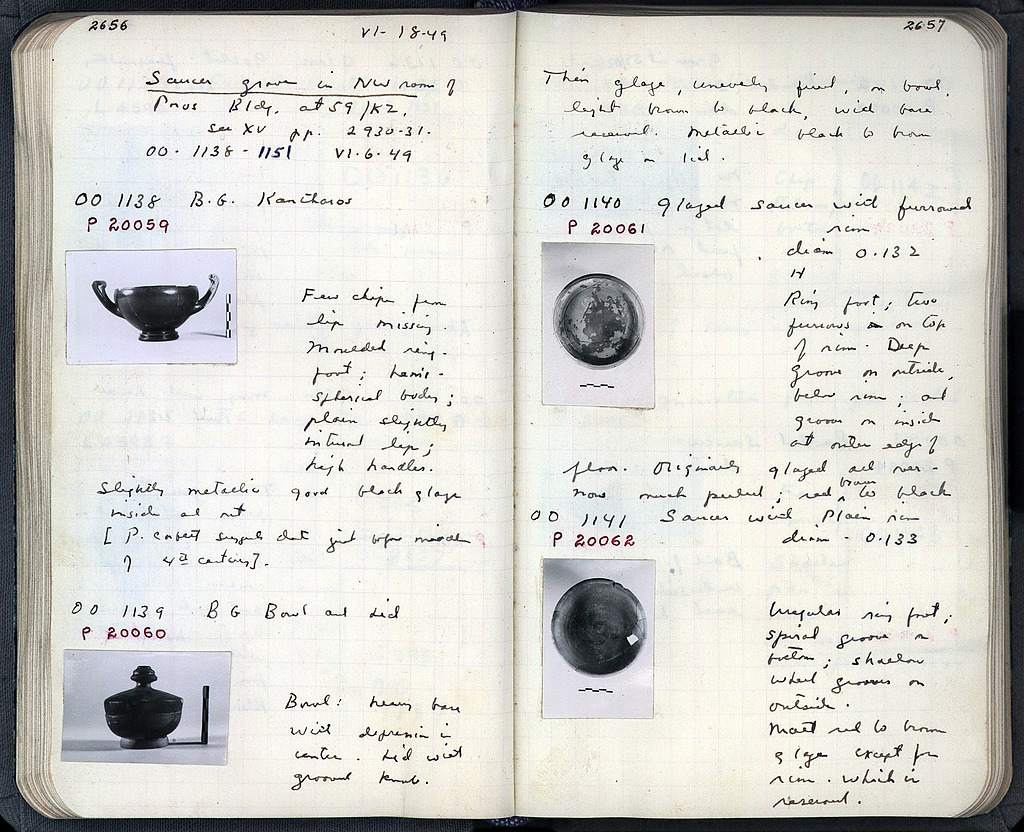 2656
VI - 18-49
Saucer grave in NW room of
Pnos Bldg. at 59/KZ.
see XV pp. 2930-31.
OO. 1138 - 1151 VI.6.49
OO 1138 B.G. Kantharos
P 20059
Few chips from
lip missing.
Moulded ring-
foot; hemi-
spherical body;
plain slightly
inturned lip;
high handles.
Slightly metallic good black glaze
inside and out
[P. Corbett suggests date just before middle
of 4th century].
OO 1139 BG Bowl and Lid
P 20060
Bowl: heavy base
with depression in
center. Lid with
grooved knob.
2657
Thin glaze, unevenly fired, on bowl,
light brown to black, with base
reserved. Metallic black to brown
glaze on lid.
OO 1140 Glazed saucer with furrowed
rim
P 20061
diam 0.132
H
Ring foot; two
furrows on top
of rim. Deep
groove on outside,
below rim; and
groove on inside
at outer edge of
floor. Originally glazed all over -
now much peeled; red brown to black
OO 1141 Saucer with Plain rim
P 20062
diam - 0.133
Irregular ring foot;
spiral groove on
bottom; shallow
wheel grooves on
outside.
Matt red to brown
glaze except for
rim. which is
reserved.